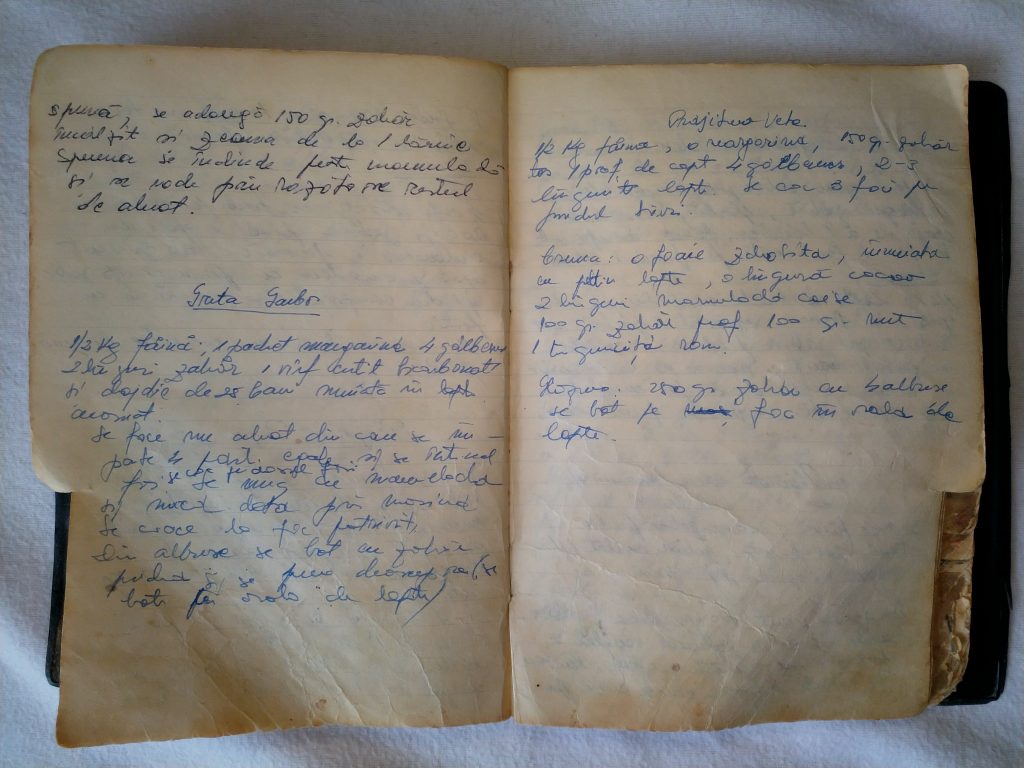 spumă, se adaugă 150 gr. zahăr
și zeama de la 1 lămîie
Spuma se întinde peste marmeladă
și se rade prin răzătoare restul
de aluat.
Greta Garbo
1/2 Kg făină, 1 pachet margarină 4 gălbenuș
2 linguri zahăr 1 vîrf cuțit bicarbonat
și drojdie de 25 bani muiată în lapte
aromat.
Se face un aluat din care se îm-
parte 4 părți egale și se întind
foi se ung cu marmeladă
și nucă dată prin mașină
Se coace la foc potrivit.
Din albușe se bat cu zahăr
pudră și se pune deasupra (se
bate pe oala de lapte)
Prajitura Veta.
1/2 Kg făina, o margarina, 150 gr. zahăr
1 praf de copt 4 gălbenuș, 2-3
lingurițe lapte. Se coc 3 foi pe
fundul tăvii.
Crema: o foaie zdrobita, inmuiata
cu puțin lapte, o lingură cacao
2 linguri marmeladă caise
100 gr. zahăr praf 100 gr. unt
1 linguriță rom.
Glazura. 250 gr. zahăr cu 4 albușe
se bat pe foc în oala de
lapte.